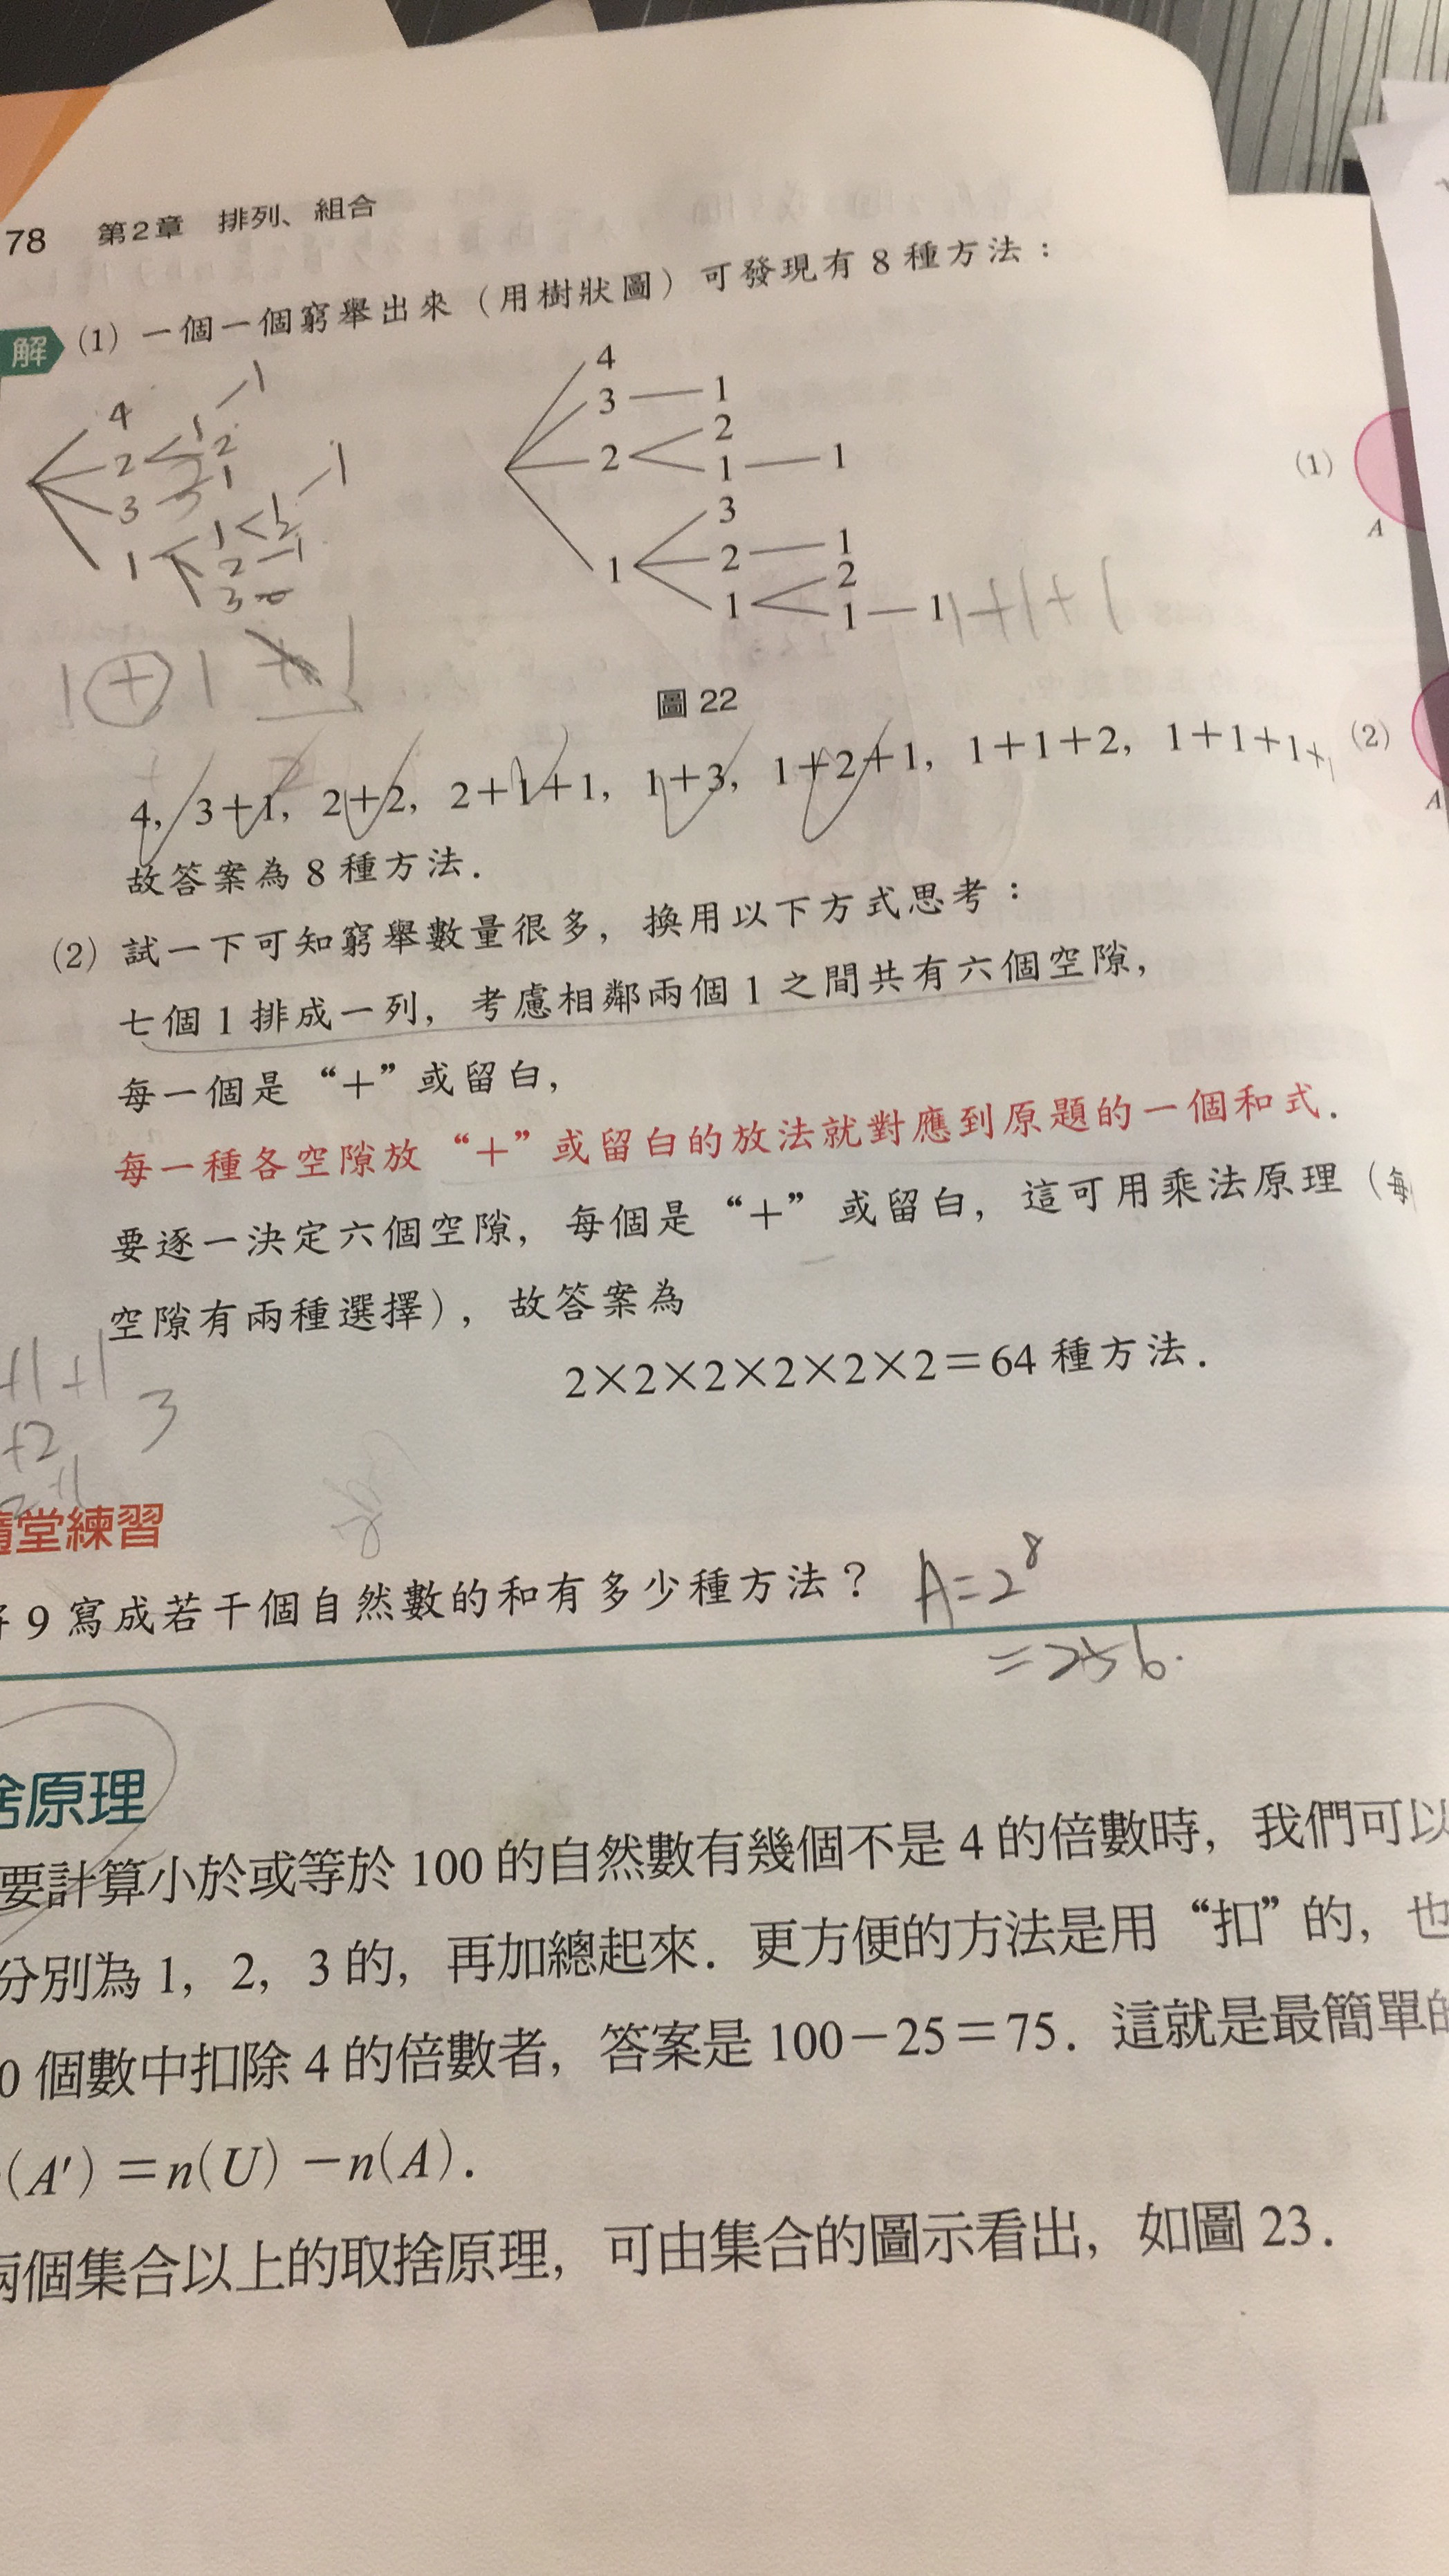 78 第2章 排列、組合
解 (1) 一個一個窮舉出來（用樹狀圖）可發現有 8 種方法：
4
3 1
2 2
1 1
1 3
2 1
1 2
1 1
1+1+1
4
2 1 1
2
3 1
1 1 1
2 1
3
1+1
圖 22
4, 3+1, 2+2, 2+1+1, 1+3, 1+2+1, 1+1+2, 1+1+1+1
故答案為 8 種方法.
(2) 試一下可知窮舉數量很多，換用以下方式思考：
七個 1 排成一列，考慮相鄰兩個 1 之間共有六個空隙，
每一個是 “+” 或留白，
每一種各空隙放 “+” 或留白的放法就對應到原題的一個和式.
要逐一決定六個空隙，每個是 “+” 或留白，這可用乘法原理（每
空隙有兩種選擇），故答案為
2×2×2×2×2×2=64 種方法.
+1+1 3
+2
2+1
隨堂練習
9 寫成若干個自然數的和有多少種方法？ A=2⁸
=256.
捨原理
要計算小於或等於 100 的自然數有幾個不是 4 的倍數時，我們可以
分別為 1, 2, 3 的，再加總起來. 更方便的方法是用 “扣” 的，也
0 個數中扣除 4 的倍數者，答案是 100-25=75. 這就是最簡單的
(A′)=n(U)-n(A).
兩個集合以上的取捨原理，可由集合的圖示看出，如圖 23.
(1)
A
(2)
A